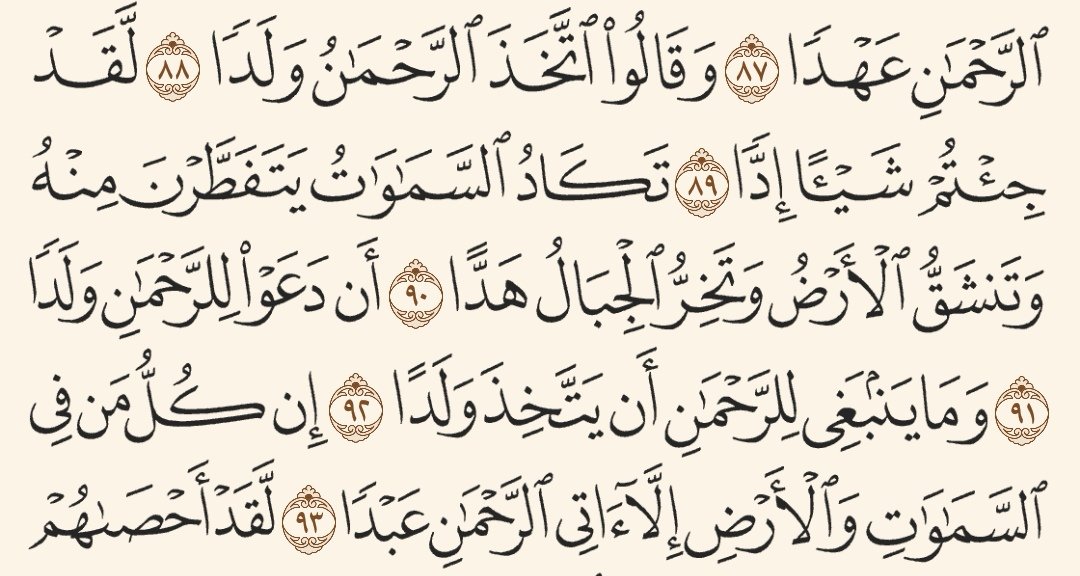 ٱلرَّحۡمَٰنِ عَهۡدٗا ٨٧ وَقَالُواْ ٱتَّخَذَ ٱلرَّحۡمَٰنُ وَلَدٗا ٨٨ لَّقَدۡ
جِئۡتُمۡ شَيۡـًٔا إِدّٗا ٨٩ تَكَادُ ٱلسَّمَٰوَٰتُ يَتَفَطَّرۡنَ مِنۡهُ
وَتَنشَقُّ ٱلۡأَرۡضُ وَتَخِرُّ ٱلۡجِبَالُ هَدًّا ٩٠ أَن دَعَوۡاْ لِلرَّحۡمَٰنِ وَلَدٗا
٩١ وَمَا يَنۢبَغِي لِلرَّحۡمَٰنِ أَن يَتَّخِذَ وَلَدًا ٩٢ إِن كُلُّ مَن فِي
ٱلسَّمَٰوَٰتِ وَٱلۡأَرۡضِ إِلَّآ ءَاتِي ٱلرَّحۡمَٰنِ عَبۡدٗا ٩٣ لَّقَدۡ أَحۡصَىٰهُمۡ